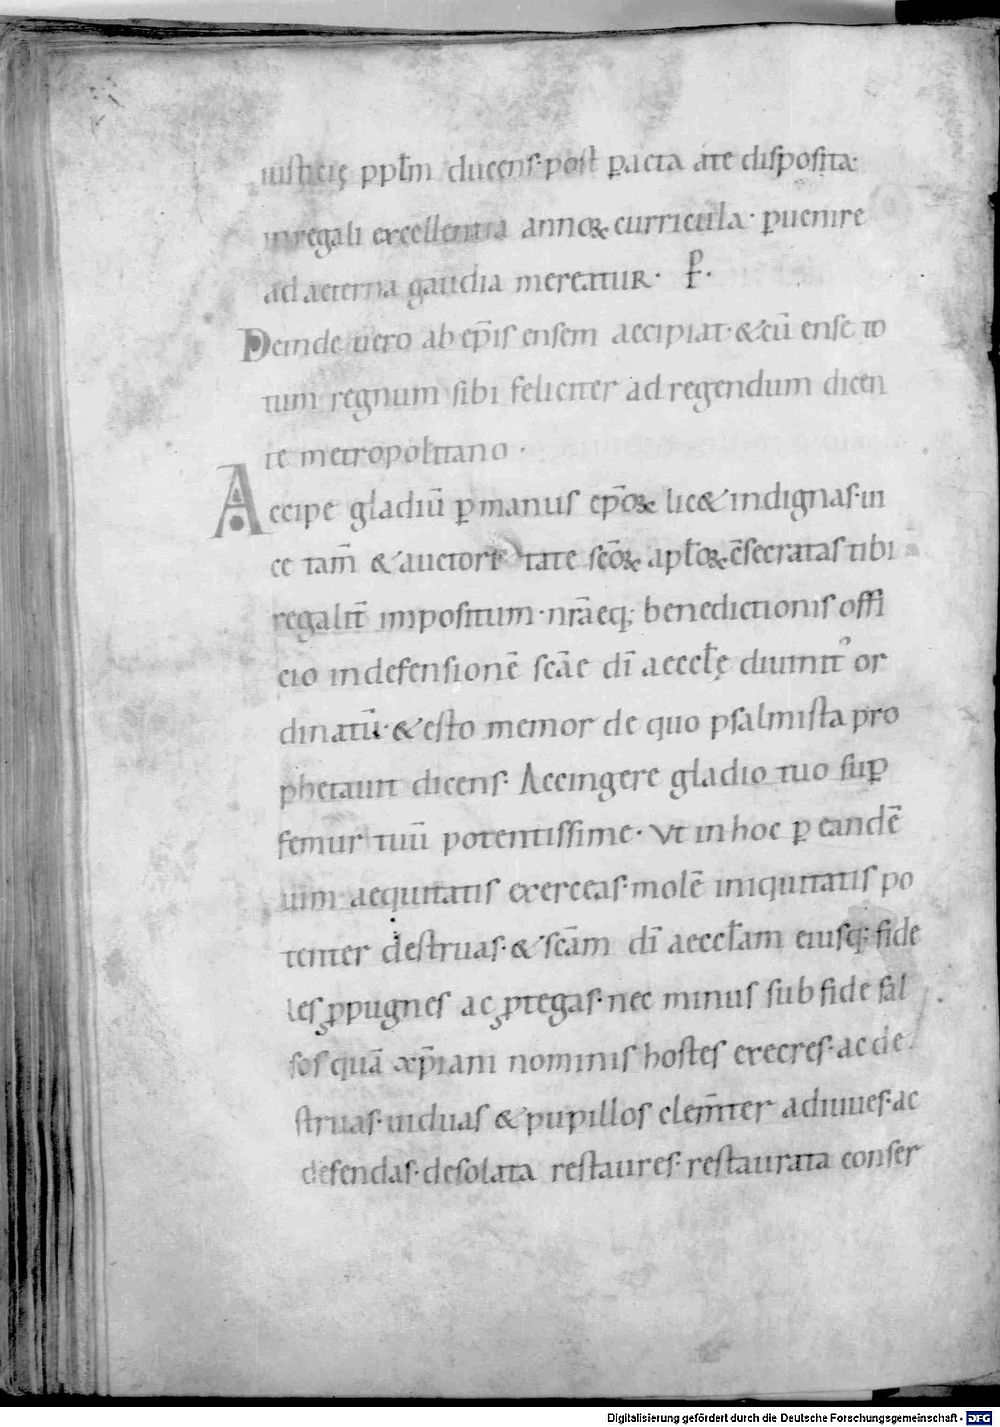 iusticię ppłm ducens· post ꝑacta a te disposita·
in regali excellentia annoꝝ curricula· ꝑuenire
ad aeterna gaudia mereatur· P̱·
Deinde uero ab ep̄is ensem accipiat· & cū ense to
tum regnum sibi feliciter ad regendum dicen
te metropolitano·
Accipe gladiū ꝑ manus ep̄oꝝ lic& indignas· ui
ce tam̄ & auctoritate sc̄oꝝ apłoꝝ c̄secratas tibi
regalit̄ impositum· nr̄aeq; benedictionis offi
cio in defensionē sc̄ae dī aeccłę diuinit᾽ or
dinatū· & esto memor de quo psalmista pro
phetauit dicens· Accingere gladio tuo suꝑ
femur tuū potentissime· Vt in hoc ꝑ eandē
uim aequitatis exerceas· molē iniquitatis po
tenter destruas· & sc̄am dī aeccłam eiusq; fide
les ꝓpugnes ac ꝓtegas· nec minus sub fide fal
sos quā xp̄iani nominis hostes execres· ac de
struas· uiduas & pupillos clem̄ter adiuues· ac
defendas· desolata restaures· restaurata conser
Digitalisierung gefördert durch die Deutsche Forschungsgemeinschaft - DFG